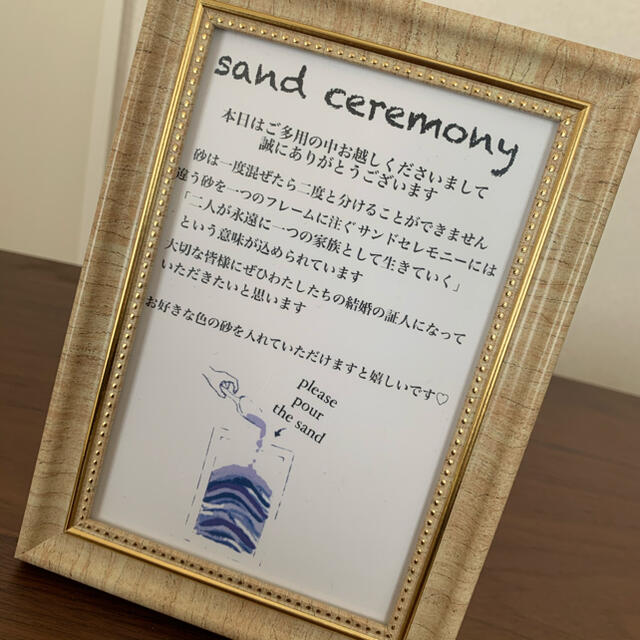 sand ceremony
本日はご多用の中お越しくださいまして
誠にありがとうございます
砂は一度混ぜたら二度と分けることができません
違う砂を一つのフレームに注ぐサンドセレモニーには
「二人が永遠に一つの家族として生きていく」
という意味が込められています
大切な皆様にぜひわたしたちの結婚の証人になって
いただきたいと思います
お好きな色の砂を入れていただけますと嬉しいです♡
please
pour
the sand